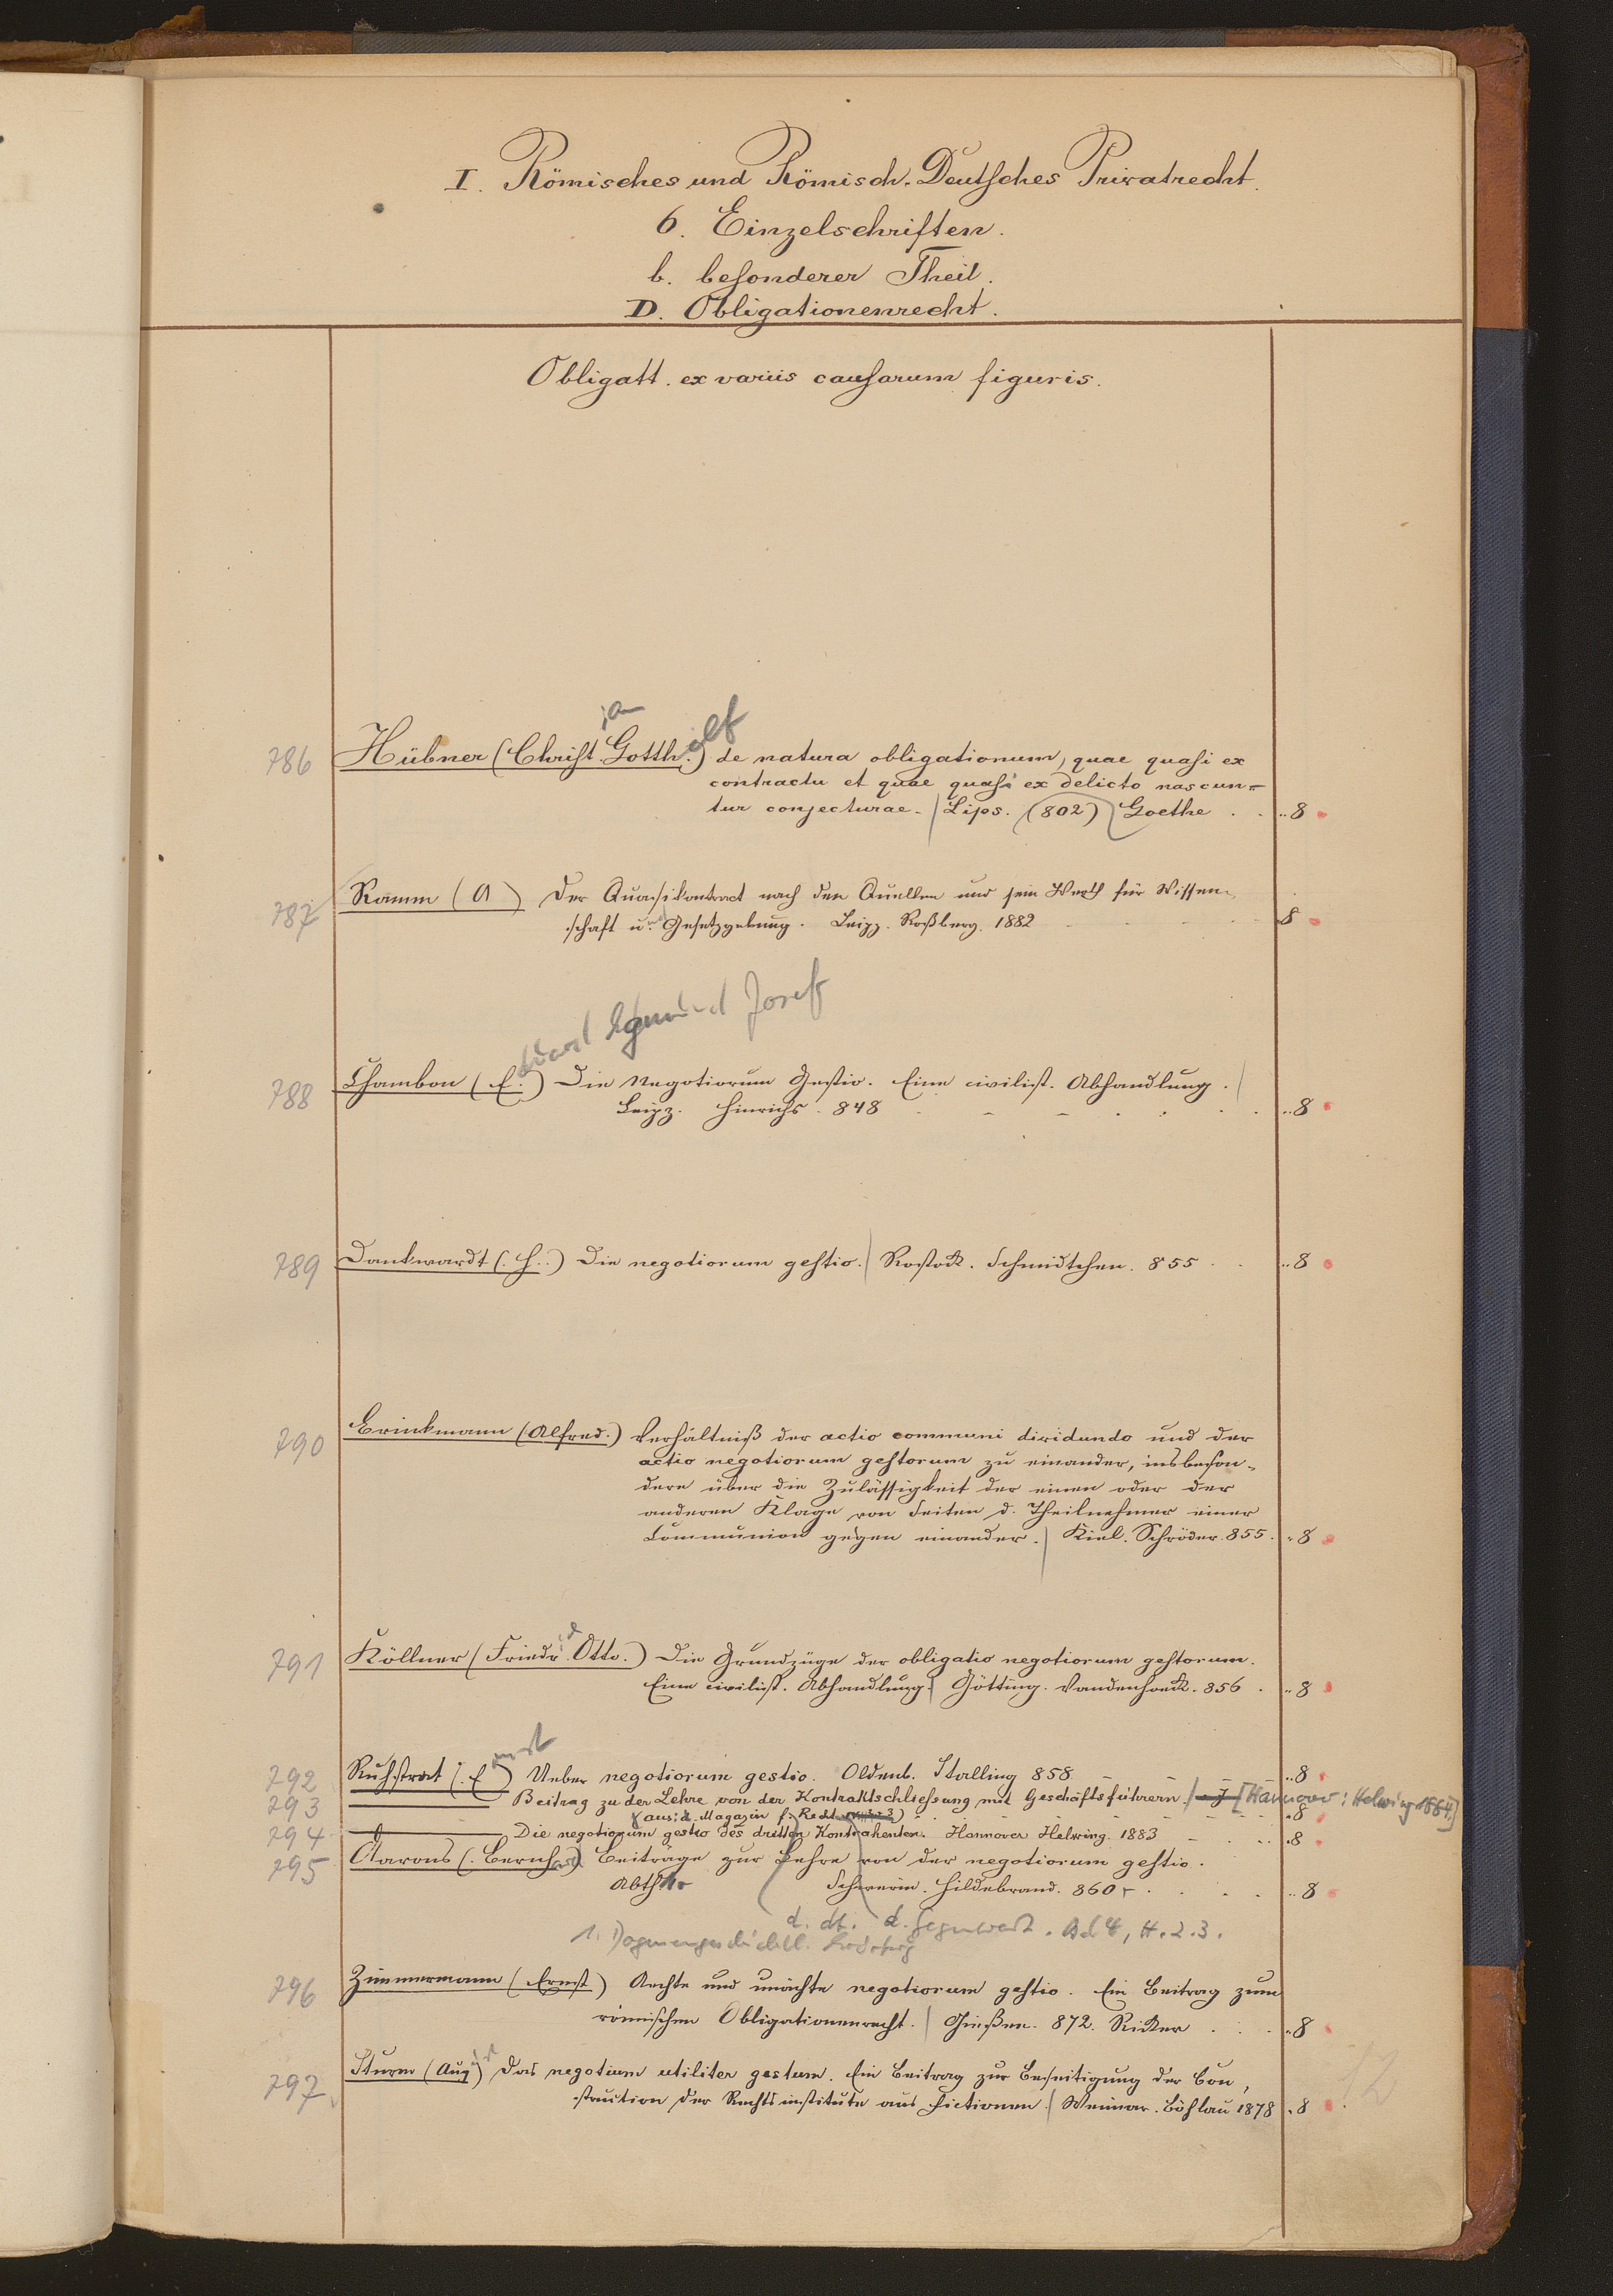 I. Römisches und Römisch-Deutsches Privatrecht.
6. Einzelschriften.
b. besonderer Theil.
D. Obligationenrecht.
Obligatt. ex variis causarum figuris.
786 Hübner (Christian Gotthelf) de natura obligationum, quae quasi ex
contractu et quae quasi ex delicto nascun-
tur conjecturae. Lips. (802) Goethe . . 8
787 Ramm (A ) Der Quasikontrakt nach den Quellen und sein Werth für Wissen-
schaft u. Gesetzgebung. Leipz. Roßberg. 1882 8
Eduard Egmund Josef
788 Chambon (E.) Die Negotiorum Gestio. Eine civilist. Abhandlung.
Leipz. Hinrichs. 848 8
789 Dankwardt (H.) Die negotiorum gestio. Rostock. Schmidtchen. 855 . . 8
790 Brinkmann (Alfred.) Verhältniß der actio communi dividundo und der
actio negotiorum gestorum zu einander, insbeson-
dere über die Zulässigkeit der einen oder der
anderen Klage von Seiten d. Theilnehmer einer
Communion gegen einander. Kiel. Schröder. 855. 8
791 Köllner (Friedr. Otto.) Die Grundzüge der obligatio negotiorum gestorum.
Eine civilist. Abhandlung. Götting. Vandenhoeck. 856 . 8
792 Ruhstrat (Ernst) Ueber negotiorum gestio. Oldenb. Stalling 858 8
793 Beitrag zu der Lehre von der Kontraktschließung mit Geschäftsführern. [Hannover: Helwing 1884] 8
(aus: d. Magazin f. Recht
794 Die negotiorum gestio des dritten Kontrahenten. Hannover Helwing. 1883 8
795 Aarons (Bernhard) Beiträge zur Lehre von der negotiorum gestio.
Abth. Schwerin. Hildebrand. 860 . 8
d. dt. d. Gegenwart. Bd 4, H. 2.3.
1. Dogmengeschichtl.
796 Zimmermann (Ernst) Aechte und unächte negotiorum gestio. Ein Beitrag zum
römischen Obligationenrecht. Gießen. 872. Ricker . . 8
797 Sturm (August) Das negotium utiliter gestum. Ein Beitrag zur Beseitigung der Con-
struction der Rechtsinstitute aus Fictionen. Weimar. Böhlau 1878 8
12